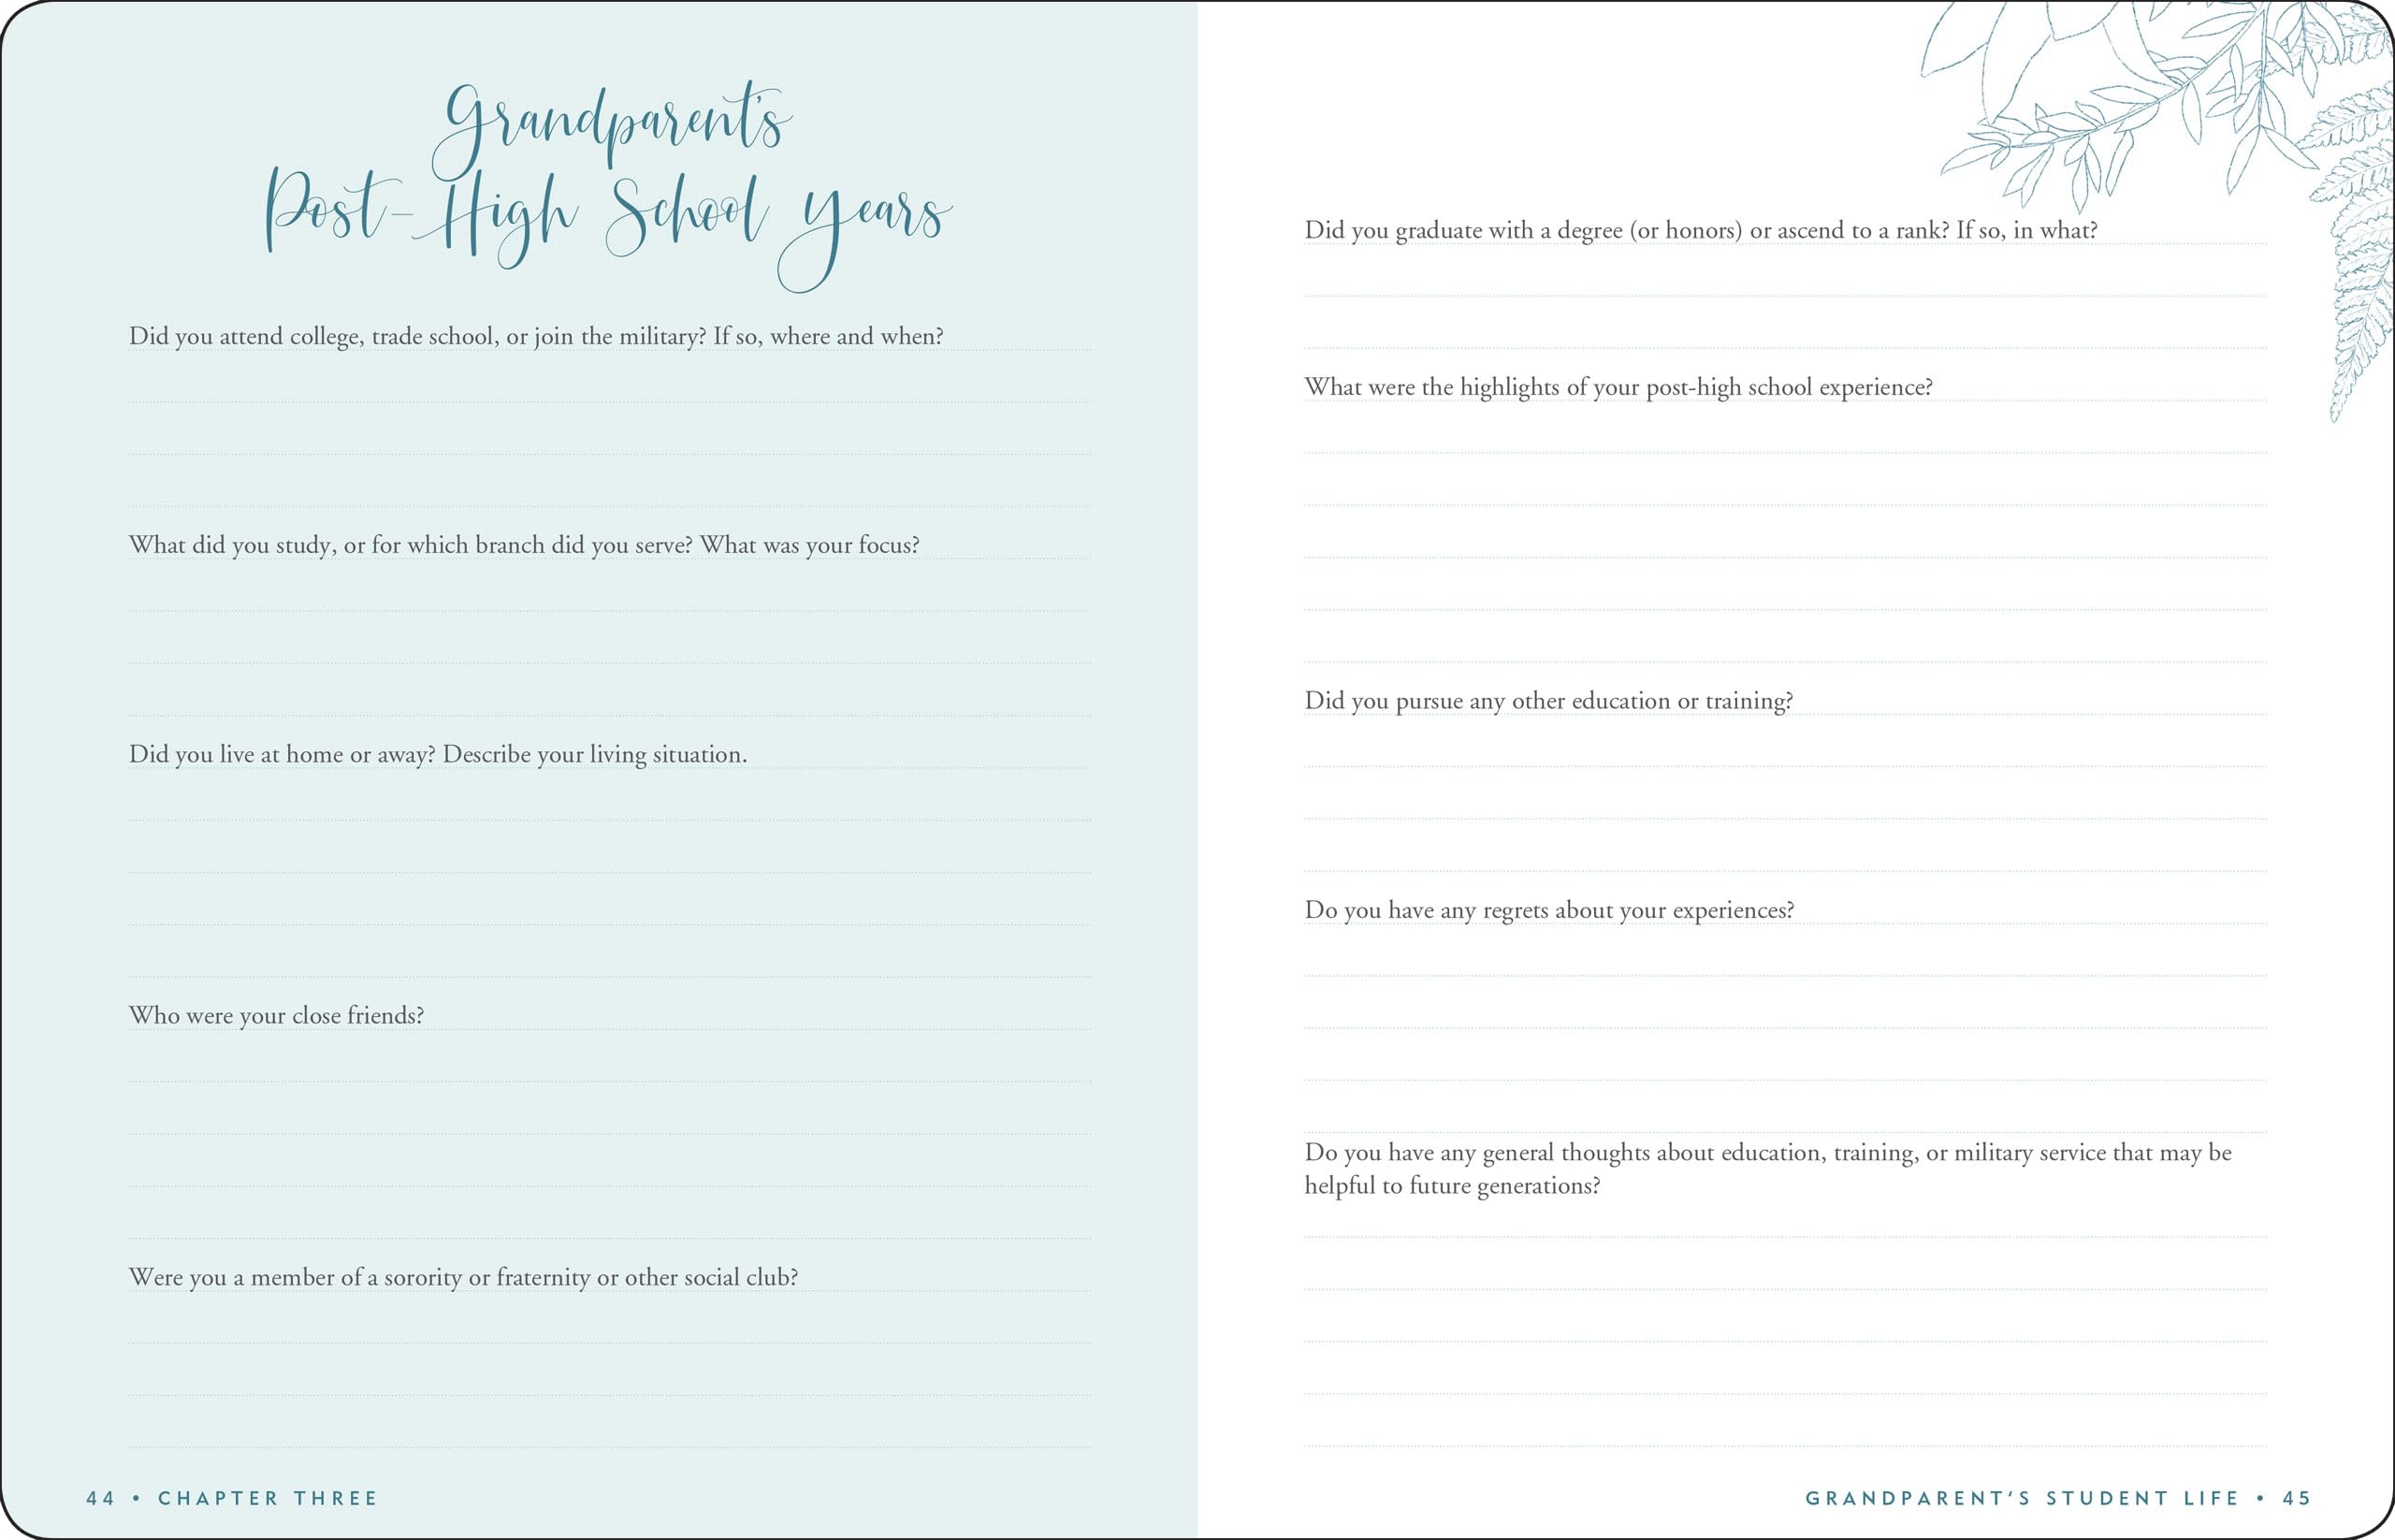 Grandparent's
Post-High School Years
Did you attend college, trade school, or join the military? If so, where and when?
What did you study, or for which branch did you serve? What was your focus?
Did you live at home or away? Describe your living situation.
Who were your close friends?
Were you a member of a sorority or fraternity or other social club?
44 • CHAPTER THREE
Did you graduate with a degree (or honors) or ascend to a rank? If so, in what?
What were the highlights of your post-high school experience?
Did you pursue any other education or training?
Do you have any regrets about your experiences?
Do you have any general thoughts about education, training, or military service that may be
helpful to future generations?
GRANDPARENT'S STUDENT LIFE • 45